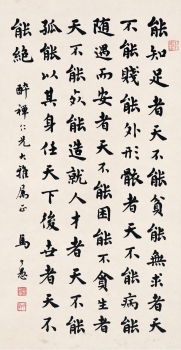 能知足者天不能貧能無求者天
不能賤能外形骸者天不能病能
隨遇而安者天不能困能不貪生者
天不能死能造就人才者天不能
孤能以其身任天下後世者天不
能絕
醉禪仁兄大雅屬正 馬公愚